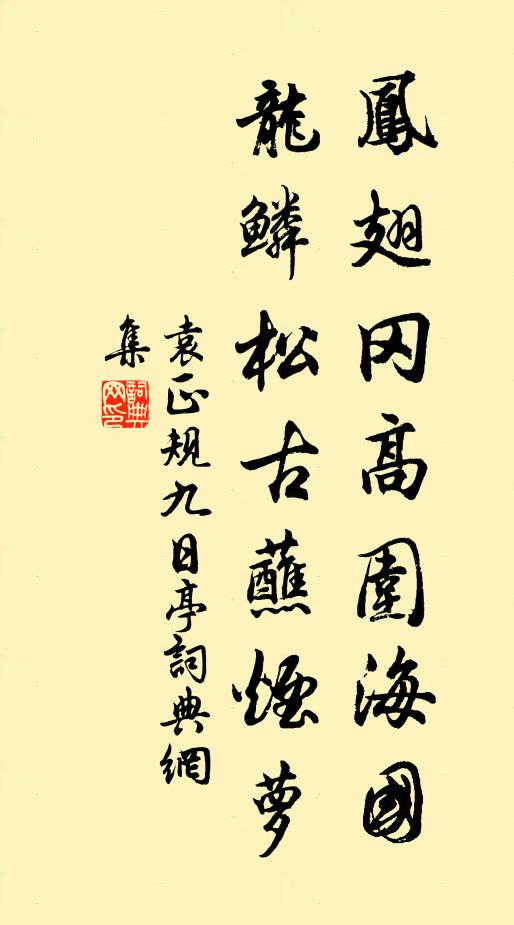 鳳翅冈高圍海國
龍鱗松古蘸煙夢
袁正規九日亭詞典網
集
詞典網印